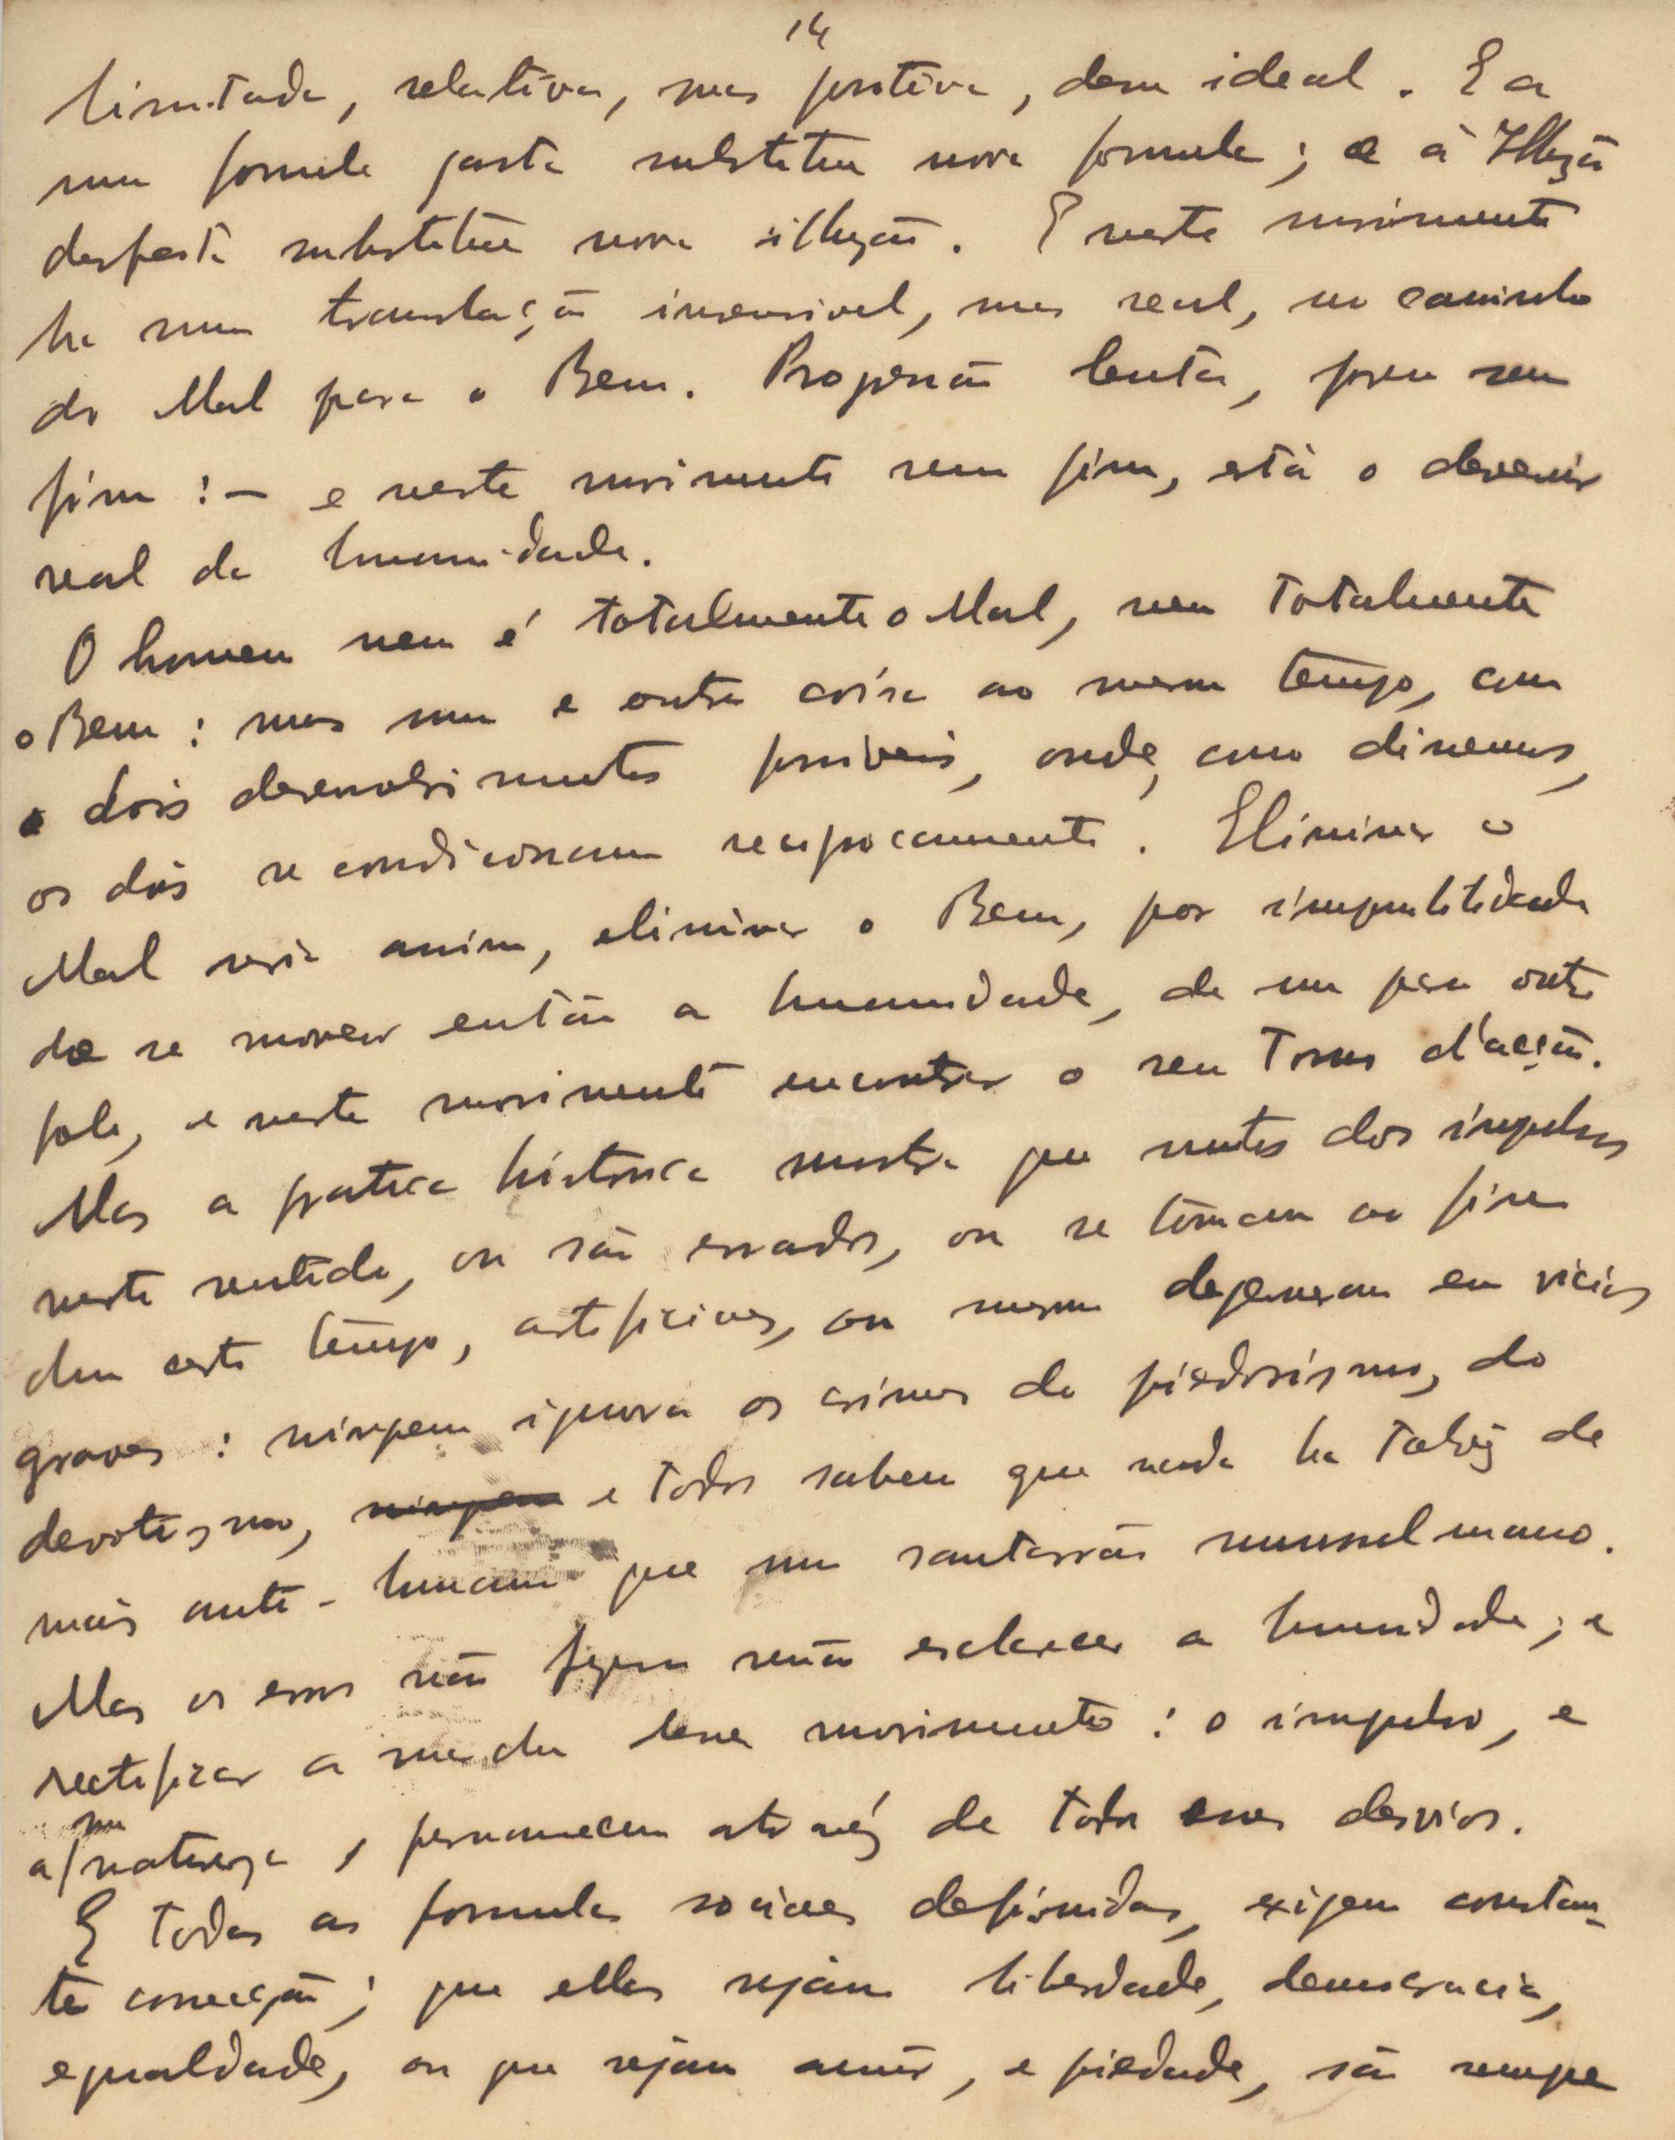 14
limitada, relativa, mas positiva, dum ideal. E a
uma formula gasta substitue nova formula; e á Illuzão
desfeita substitue nova illuzão. E neste movimento
ha uma translação insensivel, mas real, no caminho
do Mal para o Bem. Progressão lenta, porem sem
fim: — e neste movimento sem fim, está o devenir
real da humanidade.
O homem nem é totalmente o Mal, nem totalmente
o Bem: mas uma e outra coisa ao mesmo tempo, com
dois desenvolvimentos possiveis, onde, como dissemos,
os dois se condicionam reciprocamente. Eliminar o
Mal seria assim, eliminar o Bem, por impossibilidade
de se mover então a humanidade, de um para outro
polo, e neste movimento encontrar o seu Tonus d'acção.
Mas a pratica historica mostra que muitos dos impulsos
neste sentido, ou são errados, ou se tornam ao fim
dum certo tempo, artificiaes, ou mesmo degeneram em vicios
graves: ninguem ignora os crimes do piedosismo, do
devotismo, ninguem e todos sabem que nada ha talvez de
mais anti-humano que um santarrão mussulmano.
Mas os erros não fazem senão esclarecer a humanidade; e
rectificar a marcha desse movimento: o impulso, e
a sua natureza, permanecem atravéz de todos esses desvios.
E todas as formulas sociaes definidas, exigem constan-
te correcção; que ellas sejam liberdade, democracia,
egualdade, ou que sejam amôr, e piedade, são sempre